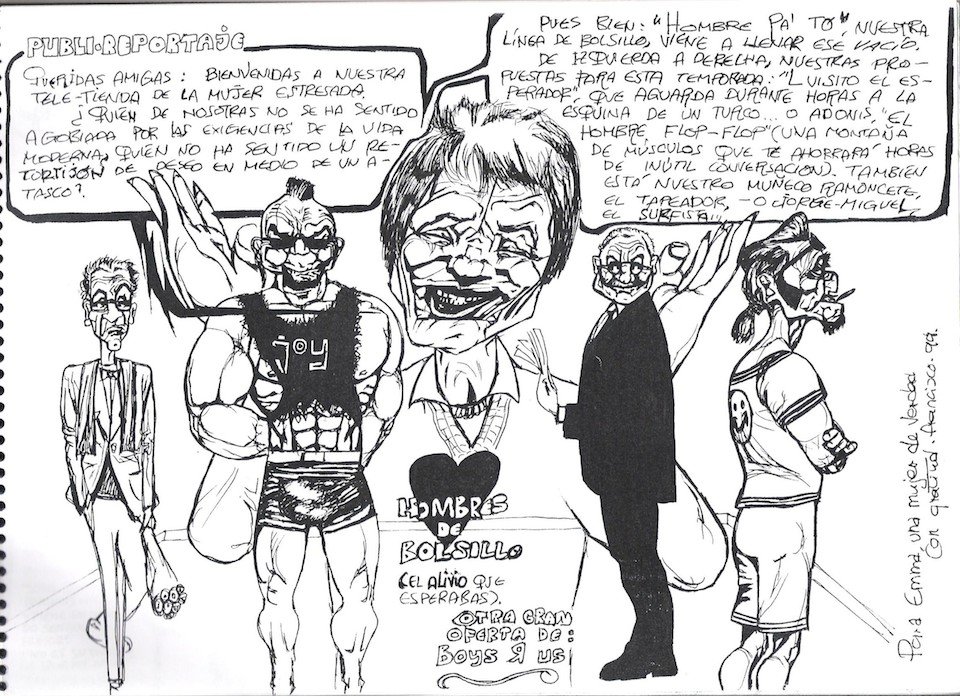 PUBLI-REPORTAJE
QUERIDAS AMIGAS: BIENVENIDAS A NUESTRA
TELE-TIENDA DE LA MUJER ESTRESADA.
¿QUIÉN DE NOSOTRAS NO SE HA SENTIDO
AGOBIADA POR LAS EXIGENCIAS DE LA VIDA
MODERNA, QUIÉN NO HA SENTIDO UN RE-
TORTIJÓN DE DESEO EN MEDIO DE UN A-
TASCO?
PUES BIEN: "HOMBRE PA' TÓ", NUESTRA
LÍNEA DE BOLSILLO, VIENE A LLENAR ESE VACÍO.
DE IZQUIERDA A DERECHA, NUESTRAS PRO-
PUESTAS PARA ESTA TEMPORADA: "LUISITO EL ES-
PERADOR", QUE AGUARDA DURANTE HORAS A LA
ESQUINA DE UN TUPIDO... O ADONIS, "EL
HOMBRE FLOP-FLOP" (UNA MONTAÑA
DE MÚSCULOS QUE TE AHORRARÁ HORAS
DE INÚTIL CONVERSACIÓN). TAMBIÉN
ESTÁ NUESTRO MUÑECO RAMONCETE,
EL TAPEADOR, - O JORGE-MIGUEL,
EL SURFISTA...
joy
HOMBRES
DE
BOLSILLO
(EL ALIVIO QUE
ESPERABAS).
OTRA GRAN
OFERTA DE:
BOYS Я US
Para Emma, una mujer de verdad
con gratitud. Francisco. 99.